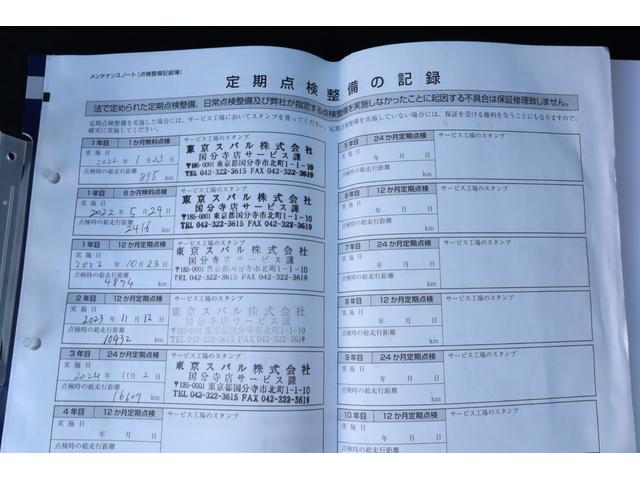 メンテナンスノート(点検整備記録簿)
定期点検整備の記録
法で定められた定期点検整備、日常点検整備及び弊社が指定する点検整備を実施しなかったことに起因する不具合は保証修理致しません。
定期点検整備を実施した場合には、サービス工場においてスタンプを貰ってください。定期点検整備を実施していない場合には、保証を受ける権利を失うことになりますので、
確実に実施してください。
1年目 1か月無料点検 サービス工場のスタンプ
実施日 2022年1月23日
点検時の総走行距離
895 km
東京スバル株式会社
国分寺店サービス課
〒185-0001 東京都国分寺市北町1-1-10
TEL 042-322-3615 FAX 042-322-3619
1年目 6か月無料点検 サービス工場のスタンプ
実施日 2022年5月29日
点検時の総走行距離
2416 km
東京スバル株式会社
国分寺店サービス課
〒185-0001 東京都国分寺市北町1-1-10
TEL 042-322-3615 FAX 042-322-3619
1年目 12か月定期点検 サービス工場のスタンプ
実施日 2022年10月23日
点検時の総走行距離
4874 km
東京スバル株式会社
国分寺店サービス課
〒185-0001 東京都国分寺市北町1-1-10
TEL 042-322-3615 FAX 042-322-3619
2年目 12か月定期点検 サービス工場のスタンプ
実施日 2023年11月12日
点検時の総走行距離
10432 km
東京スバル株式会社
国分寺店サービス課
〒185-0001 東京都国分寺市北町1-1-10
TEL 042-322-3615 FAX 042-322-3619
3年目 24か月定期点検 サービス工場のスタンプ
実施日 2024年11月2日
点検時の総走行距離
16609 km
東京スバル株式会社
国分寺店サービス課
〒185-0001 東京都国分寺市北町1-1-10
TEL 042-322-3615 FAX 042-322-3619
4年目 12か月定期点検 サービス工場のスタンプ
実施日 年 月 日
点検時の総走行距離
5年目 24か月定期点検 サービス工場のスタンプ
実施日 年 月 日
点検時の総走行距離
km
6年目 12か月定期点検 サービス工場のスタンプ
実施日 年 月 日
点検時の総走行距離
km
7年目 24か月定期点検 サービス工場のスタンプ
実施日 年 月 日
点検時の総走行距離
km
8年目 12か月定期点検 サービス工場のスタンプ
実施日 年 月 日
点検時の総走行距離
km
9年目 24か月定期点検 サービス工場のスタンプ
実施日 年 月 日
点検時の総走行距離
km
10年目 12か月定期点検 サービス工場のスタンプ
実施日 年 月 日
点検時の総走行距離